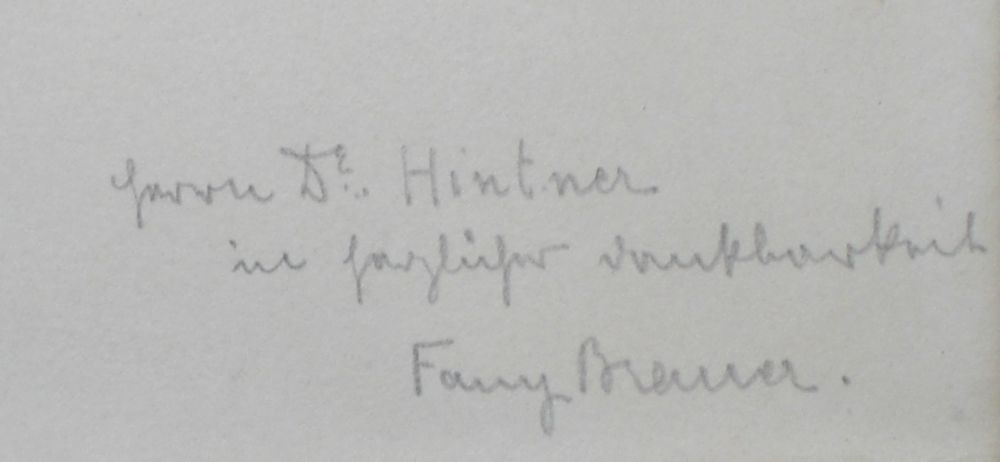 Herrn Dr. Hintner
in herzlicher Dankbarkeit
Fany Brauer.